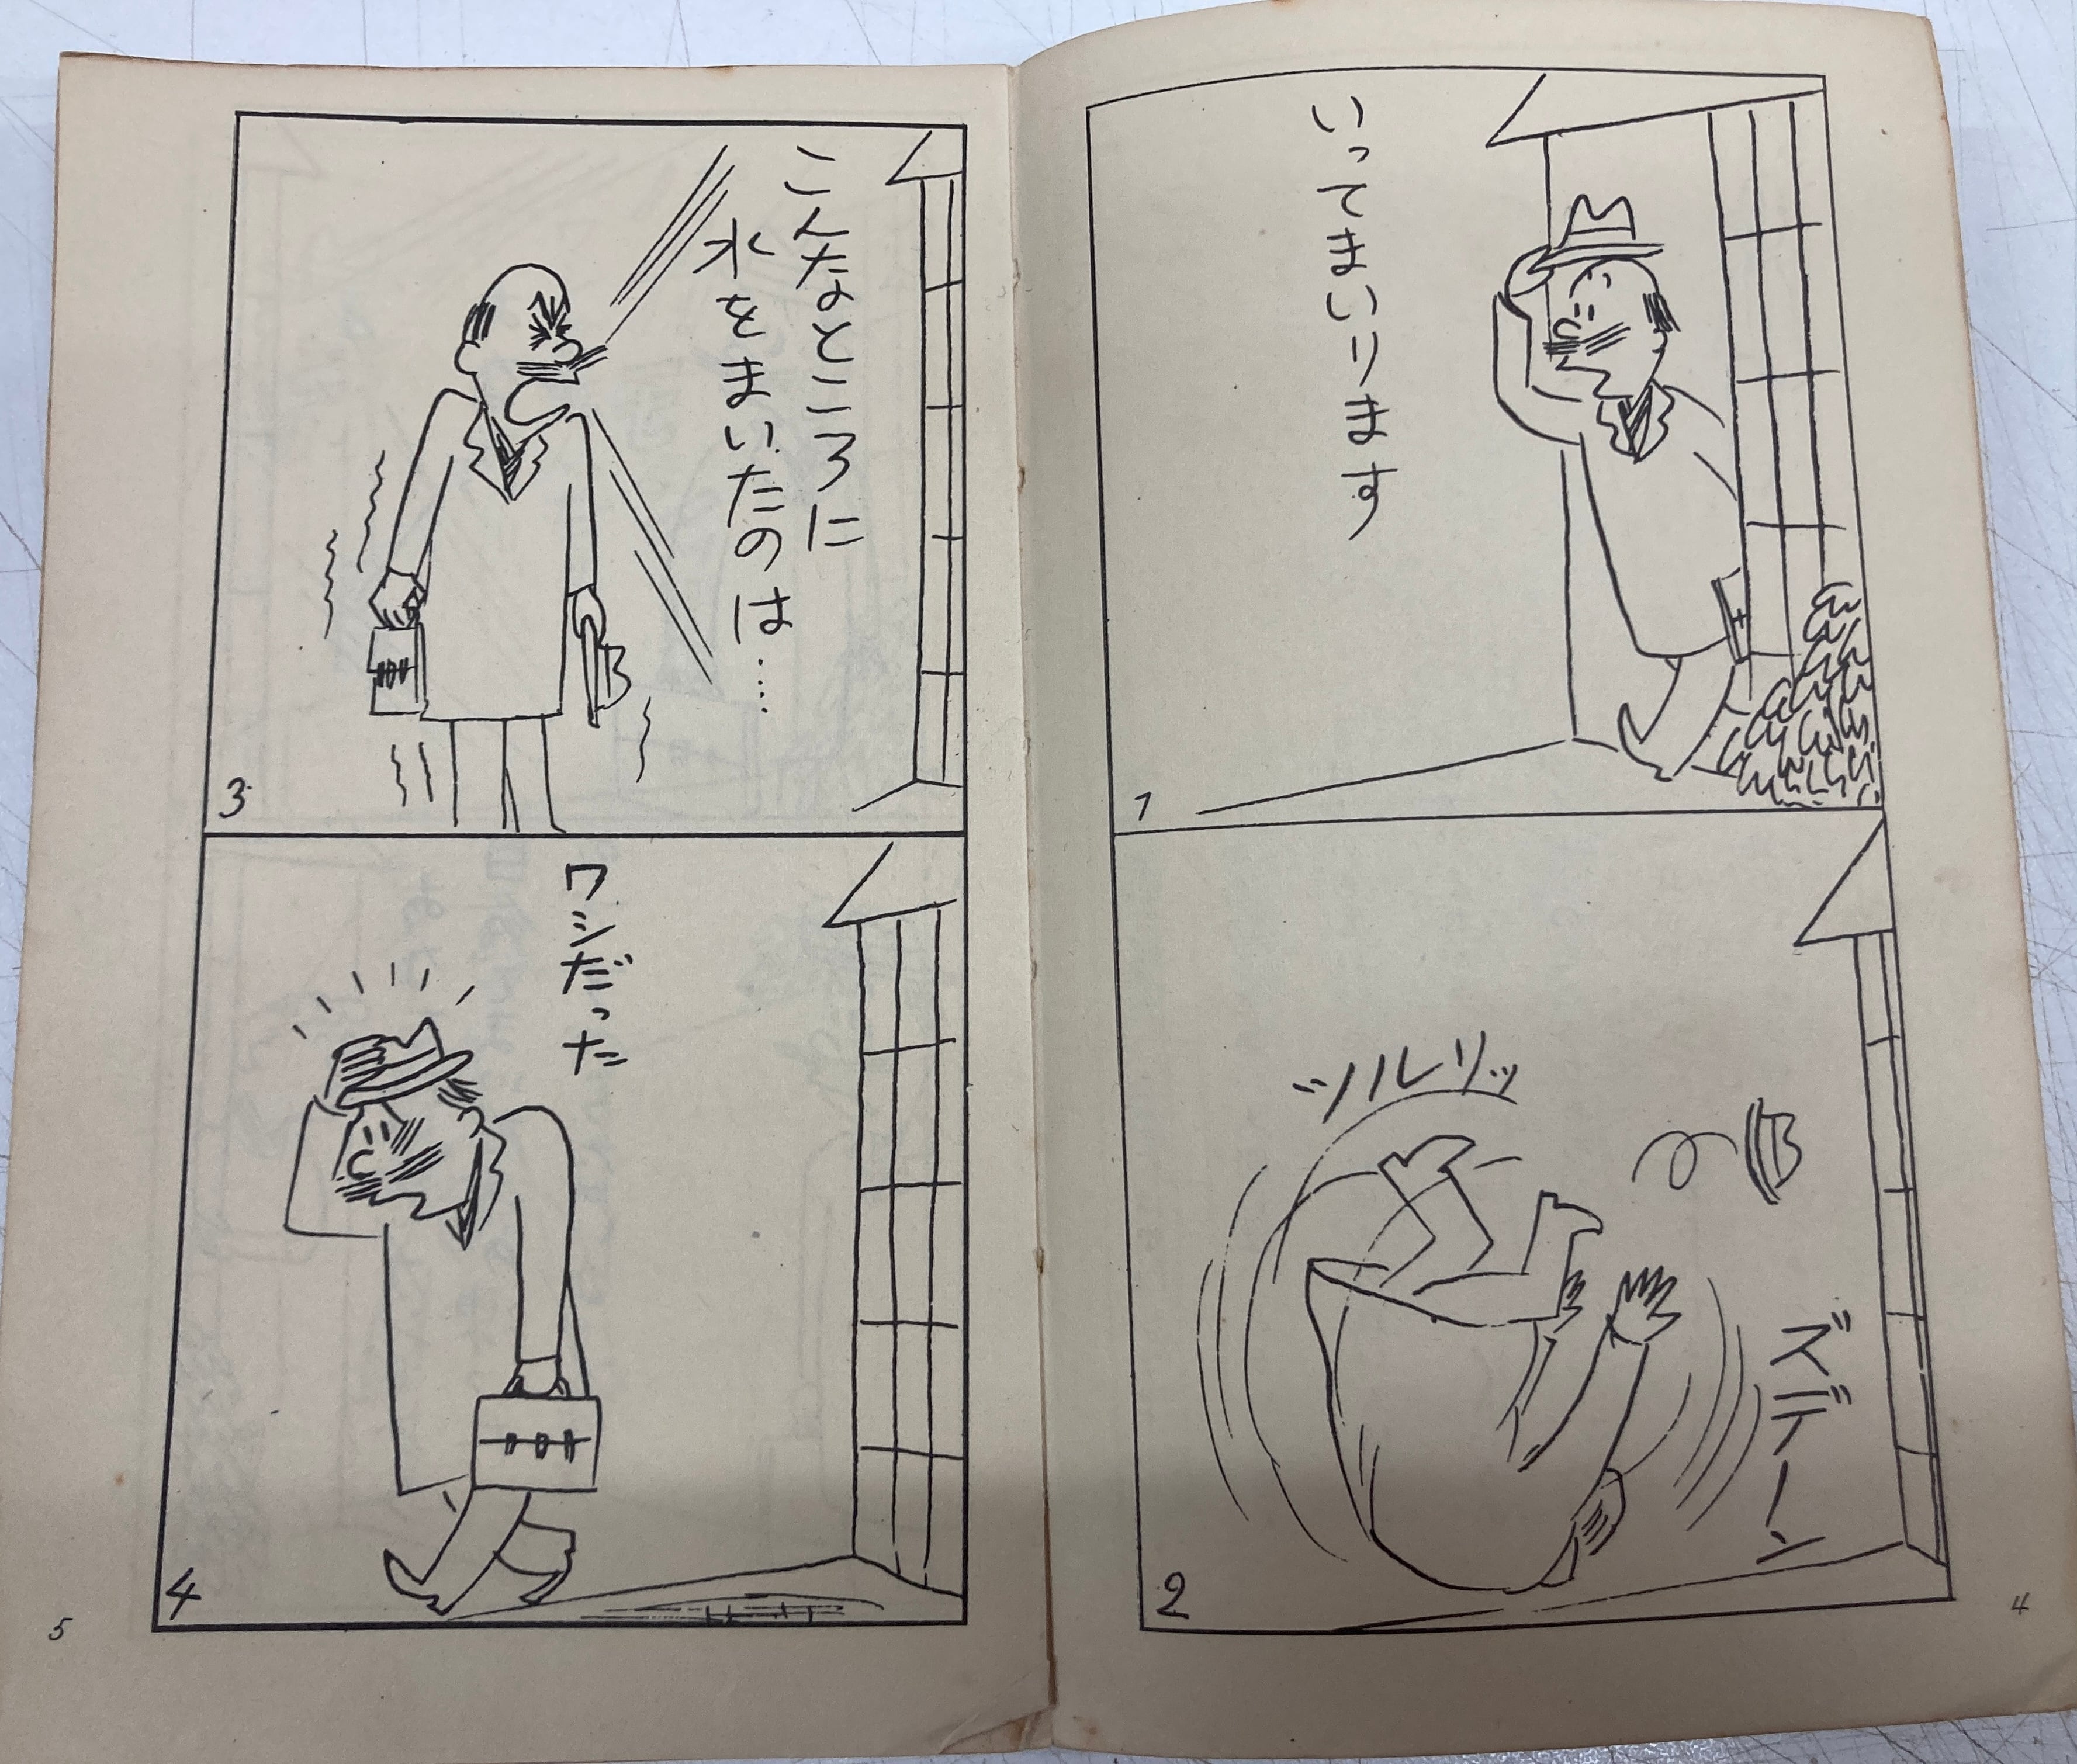 いってまいります
1
ツルリッ
ズデーン
2
4
こんなところに
水をまいたのは……
3
ワシだった
4
5